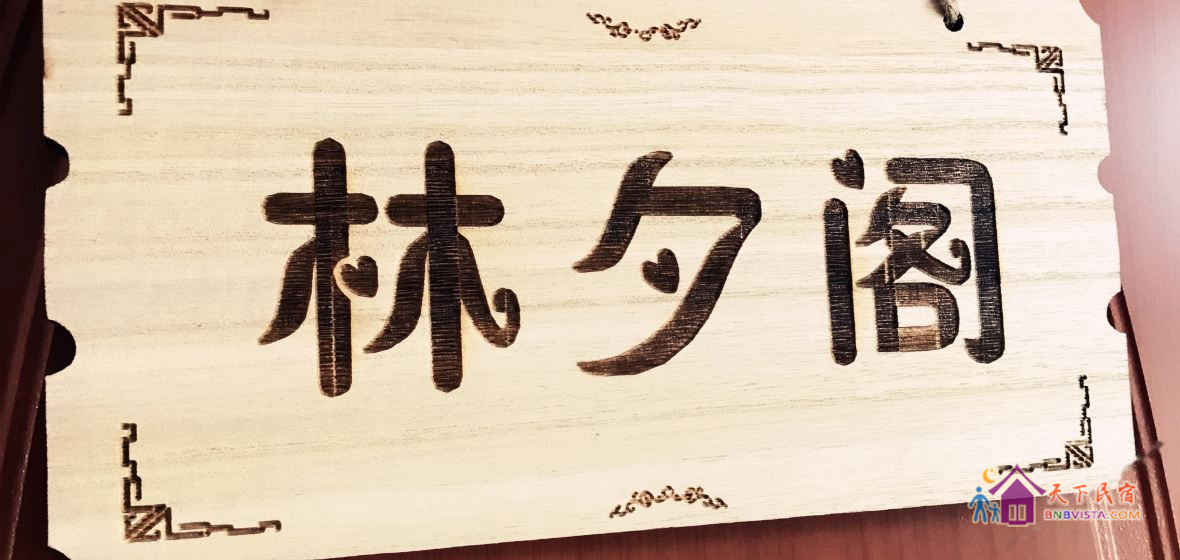 林夕阁
天下民宿
BNBVISTA.COM